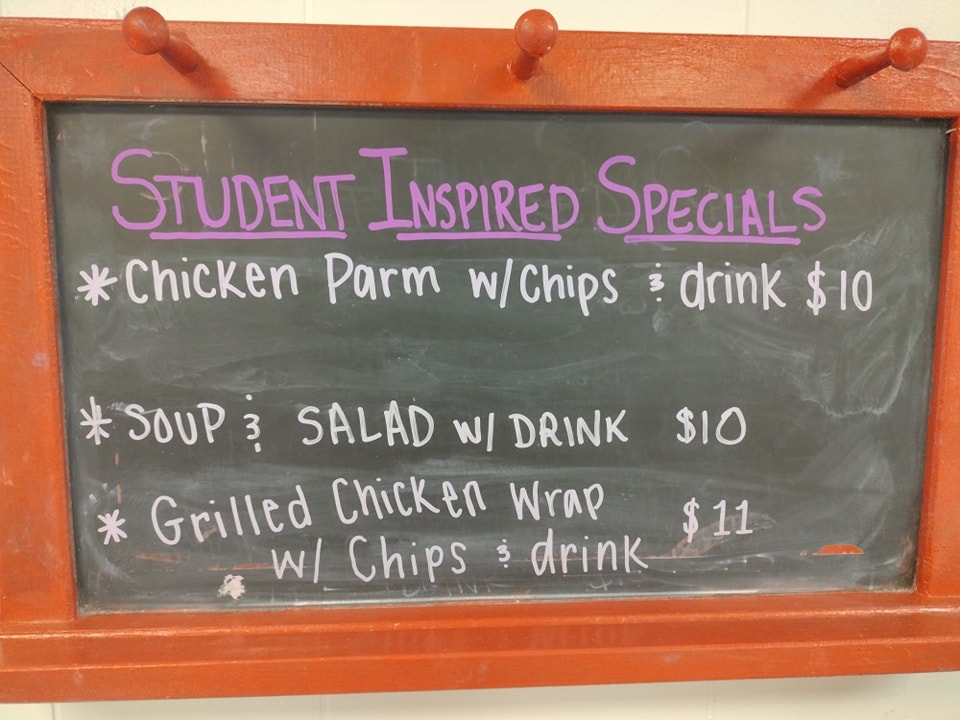 STUDENT INSPIRED SPECIALS
*Chicken Parm w/Chips & drink $10
* SOUP & SALAD w/ DRINK $10
* Grilled Chicken Wrap $11
w/ Chips & drink